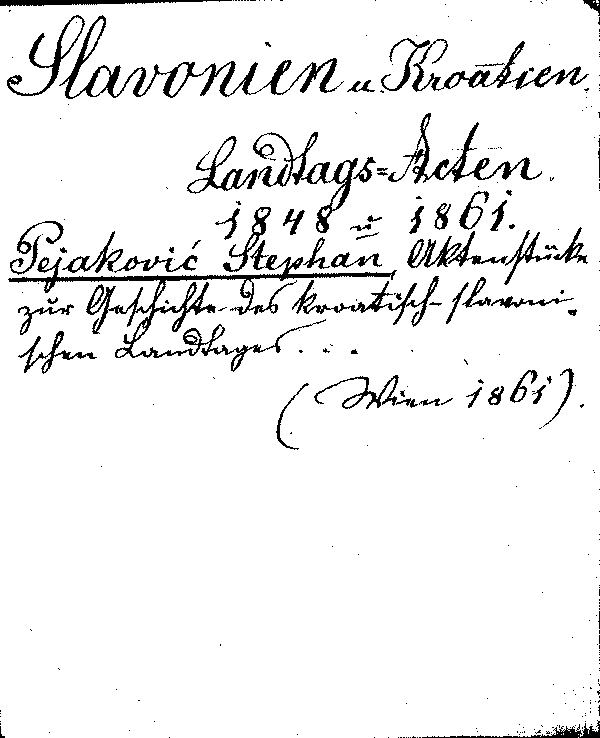 Slavonien u. Kroatien.
Landtags-Acten.
1848 u 1861.
Pejaković Stephan, Aktenstücke
zur Geschichte des kroatisch-slavoni-
schen Landtages. . .
(Wien 1861).